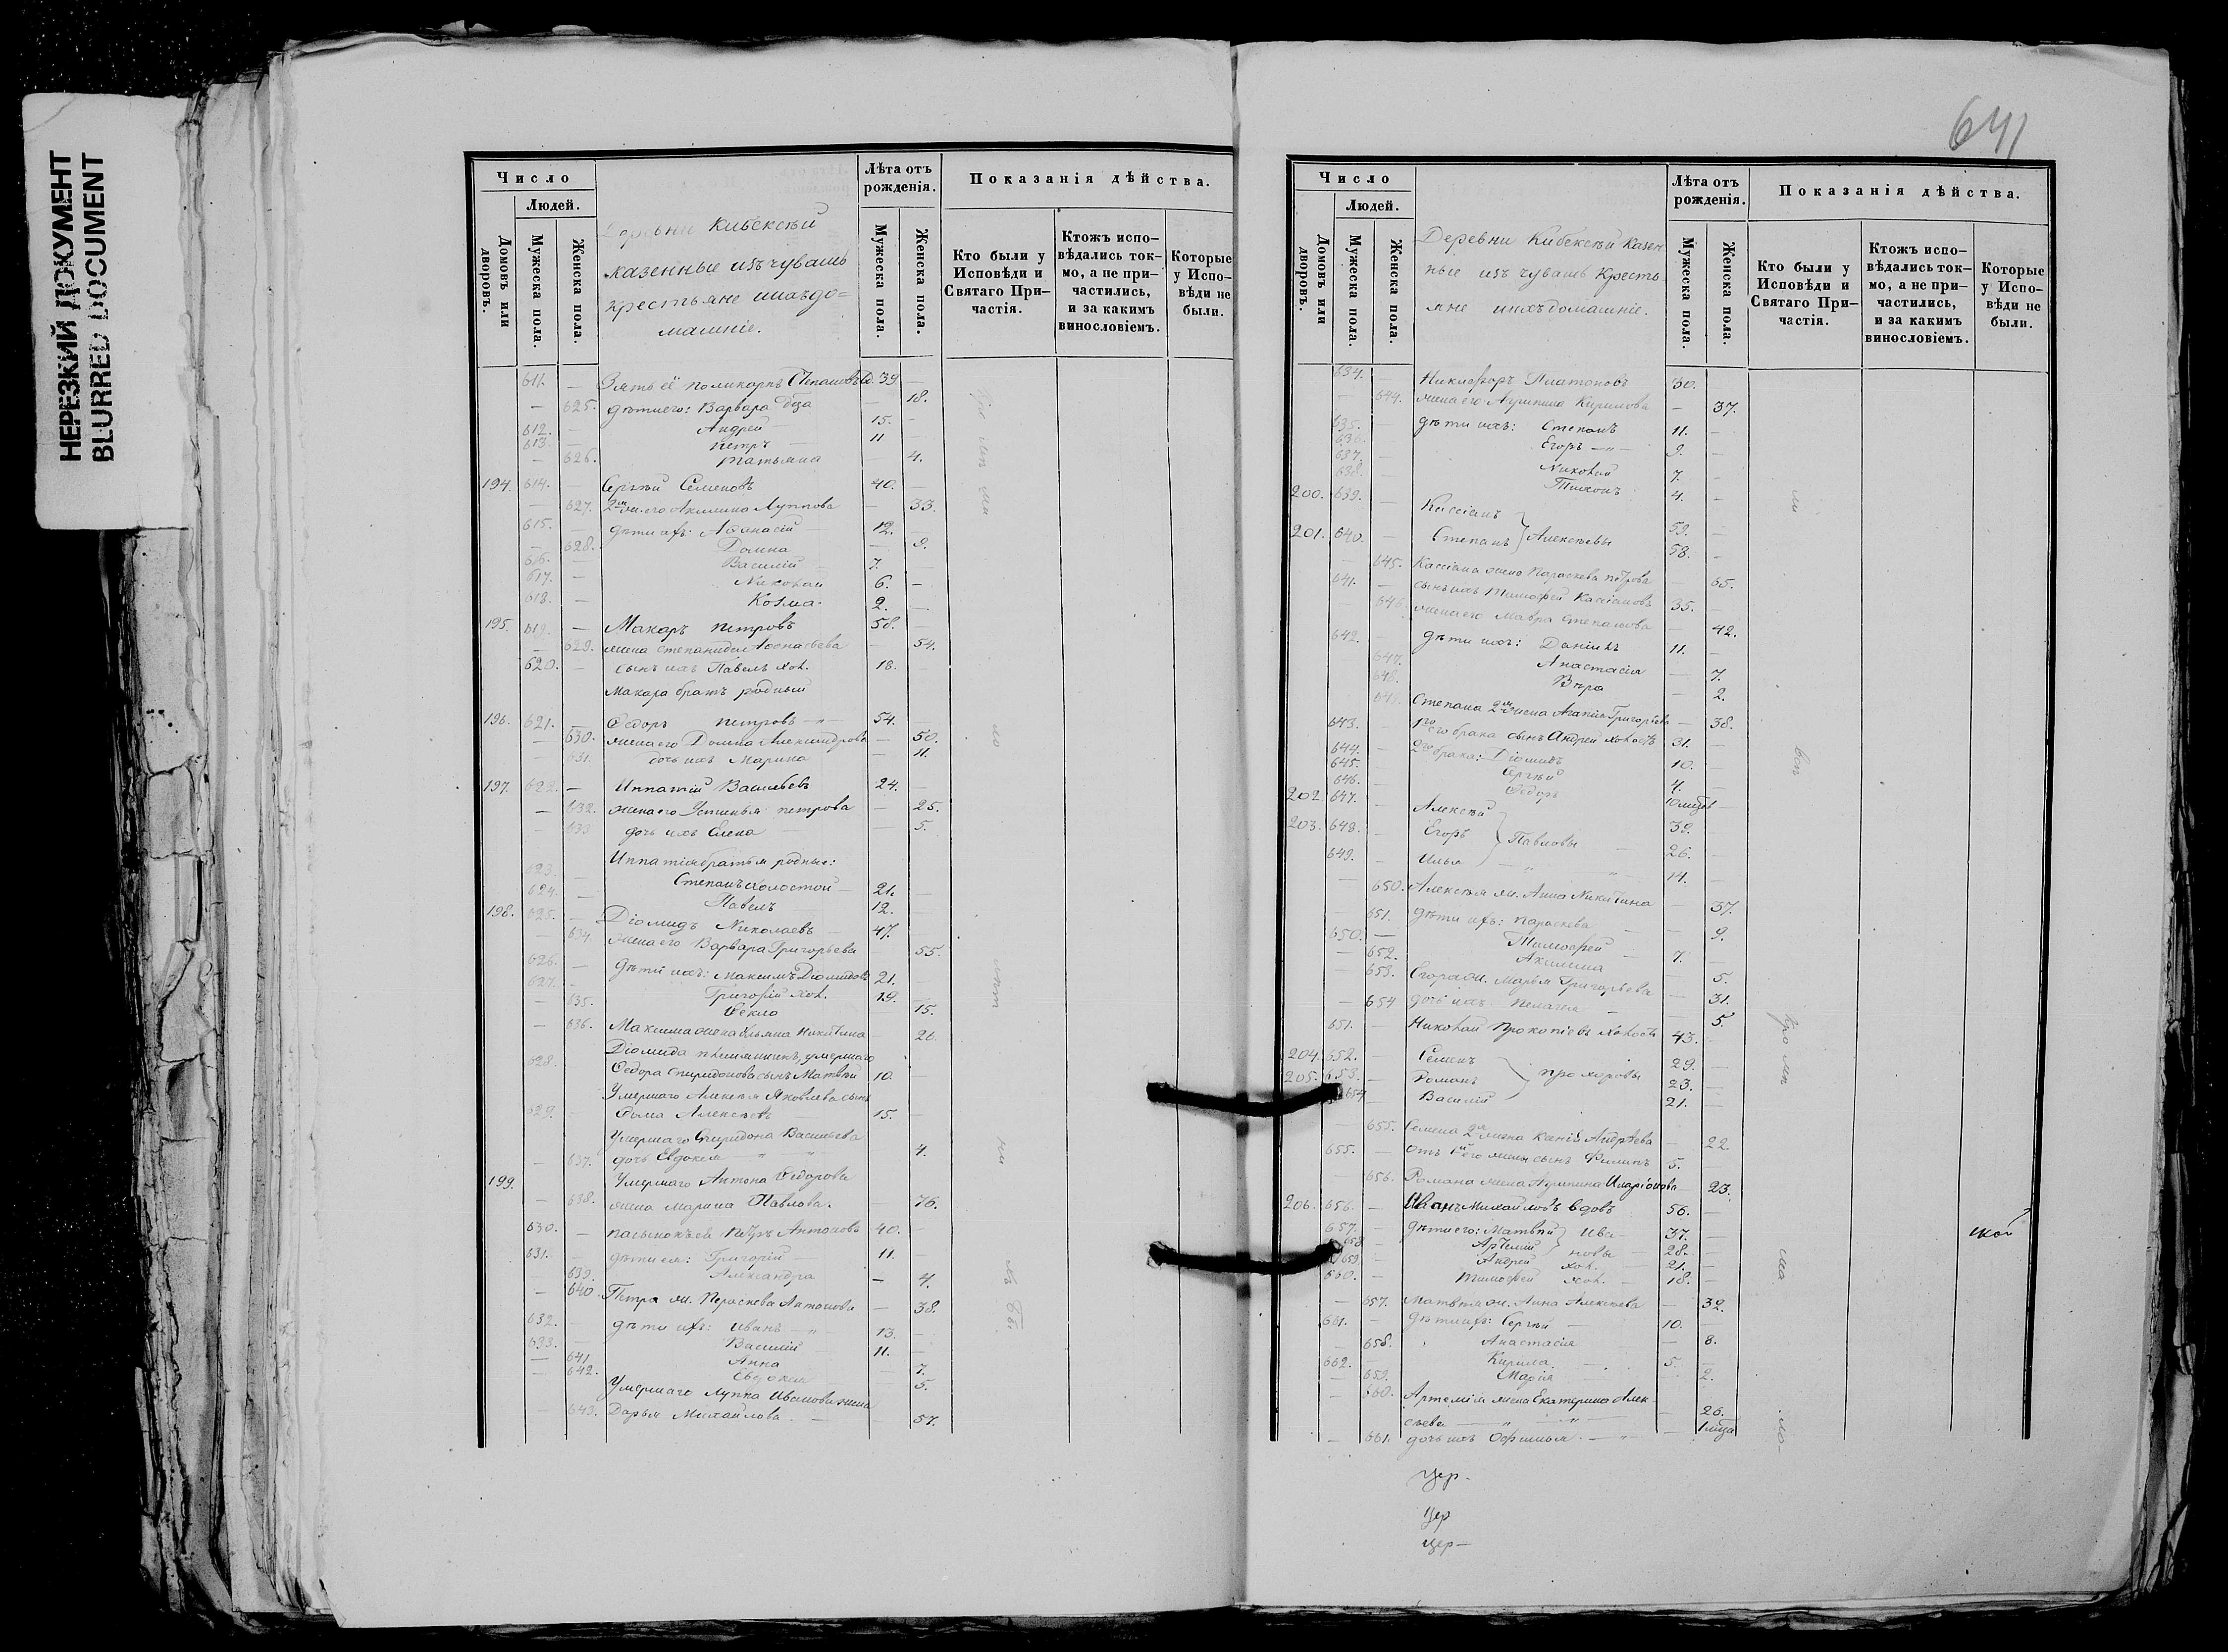 НЕРЕЗКИЙ ДОКУМЕНТ
BLURRED DOCUMENT
Число
Людей.
Домовъ или дворовъ.
Мужеска пола.
Женска пола.
Деревни Кибексѣй
казенные изъ чувашъ
крестьяне и ихъ до=
машніе.
Лѣта отъ рожденія.
Мужеска пола.
Женска пола.
Показанія дѣйства.
Кто были у Исповѣди и Святаго Причастія.
Ктожъ исповѣдались токмо, а не причастились, и за какимъ винословіемъ.
Которые у Исповѣди не были.
611. — Зять её Поликарпъ Степановъ вд. 39. —
— 625. дѣти его: Варвара дѣва — 18.
612. — Андрей 15. —
613. — Петръ 11 —
— 626. Татьяна — 4.
194. 614. — Сергѣй Семеновъ 40. —
— 627. 2я ж. его Акилина Луппова — 33.
615. — дѣти ихъ: Аѳанасій 12. —
— 628. Домна — 9.
616. — Василій 7. —
617. — Николай 6. —
618. — Козма 2. —
195. 619. — Макаръ Петровъ 58. —
— 629. жена Степанида Аѳонасьева — 54.
620. — сынъ ихъ Павелъ хол. 18. —
Макара братъ родный
196. 621. — Ѳедоръ Петровъ 54. —
— 630. жена его Домна Александрова — 50.
— 631. дочь ихъ Марина — 11.
197. 622. — Ипатій Васильевъ 24. —
— 632. жена его Устинья Петрова — 25.
— 633 дочь ихъ Елена — 5.
Иппатія братья родные:
623. — Степанъ холостой 21. —
624. — Павелъ 12. —
198. 625. — Діомидъ Николаевъ 47. —
— 634. жена его Варвара Григорьева — 55.
626. — дѣти ихъ: Максимъ Діомидовъ 21. —
627. — Григорій хол. 19. —
— 635. Ѳекла — 15.
— 636. Максима жена Ульяна Никитина — 21.
Діомида племянникъ, умершаго
628. Ѳедора Спиридонова сынъ Матвѣй 10. —
Умершаго Алексѣя Яковлева сынъ
629. Ѳома Алексѣевъ 15. —
Умершаго Спиридона Васильева
— 637. дочь Евдокія 4.
199. Умершаго Антона Ѳедорова
— 638. жена Марина Павлова. — 76.
630. — пасынокъ ея Петръ Антоновъ 40. —
631. — дѣти ея: Григорій 11. —
— 639. Александра — 4.
— 640. Петра ж. Параскева Антонова — 38.
632. — дѣти ихъ: Иванъ 13. —
633. — Василій 11. —
— 641. Анна 7.
— 642. Евдокія 5.
Умершаго Луппа Иванова жена
— 643. Дарья Михайлова. — 57.
641
Число
Людей.
Домовъ или дворовъ.
Мужеска пола.
Женска пола.
Деревни Кибексѣй казен
ные изъ чувашъ кресть
яне и ихъ домашніе.
Лѣта отъ рожденія.
Мужеска пола.
Женска пола.
Показанія дѣйства.
Кто были у Исповѣди и Святаго Причастія.
Ктожъ исповѣдались токмо, а не причастились, и за какимъ винословіемъ.
Которые у Исповѣди не были.
634. — Никифоръ Платоновъ 30. —
— 644. жена его Агрипина Кирилова — 37.
635. дѣти ихъ: Степанъ 11. —
636. Егоръ 9. —
637. Николай 7. —
638. Тихонъ 4. —
200. 639. — Кассіанъ 59. —
201. 640. — Степанъ } Алексѣевы 58. —
— 645. Кассіана жена Параскева Петрова 65.
641. — сынъ ихъ Тимоѳей Кассіановъ 35. —
— 646. жена его Мавра Степанова — 42.
642. — дѣти ихъ: Даніилъ 11. —
647. Анастасія — 7.
648. Вѣра — 2.
649. Степана 2я жена Агапія Григорьева — 38.
643. — 1го его брака сынъ Андрей холостъ 31. —
644. — 2го брака: Діомидъ 10. —
645. Сергѣй 4. —
646. Ѳедоръ 10 мѣс. —
202. 647. — Алексѣй 39. —
203. 648. — Егоръ } Павловы 26. —
649. — Илья 14. —
— 650. Алексѣя ж. Анна Никитина — 37.
651. дѣти ихъ: Параскева — 9.
650. — Тимоѳей 7. —
— 652. Акилина — 5.
— 653. Егора ж. Марья Григорьева — 31.
— 654. дочь ихъ Пелагея — 5.
651. — Николай Прокопіевъ холостъ 43. —
204. 652. — Семенъ 29. —
205. 653. — Романъ } Прохоровы 23. —
654 Василій 21. —
— 655. Семена 2я жена Ксенія Андреева — 22.
655. — отъ 1й его жены сынъ Филипъ 5. —
656. Романа жена Агрипина Иларіонова 23.
206. 656. — Иванъ Михайловъ вдовъ 56. —
657. — дѣти его: Матвѣй } Ива- 37. —
658. — Артемій } новы 28. —
659 — Андрей хол. 21. —
660. — Тимоѳей хол. 18. —
— 657. Матвѣя ж. Анна Алексѣева — 32.
661. — дѣти ихъ: Сергѣй 10. —
— 658. Анастасія — 8.
662. — Кирила 5. —
— 659. Марія 2.
— 660. Артемія жена Екатерина Алек-
сѣева — 26.
— 661. дочь ихъ Офимья 1 мѣца
цер-
цер
цер-